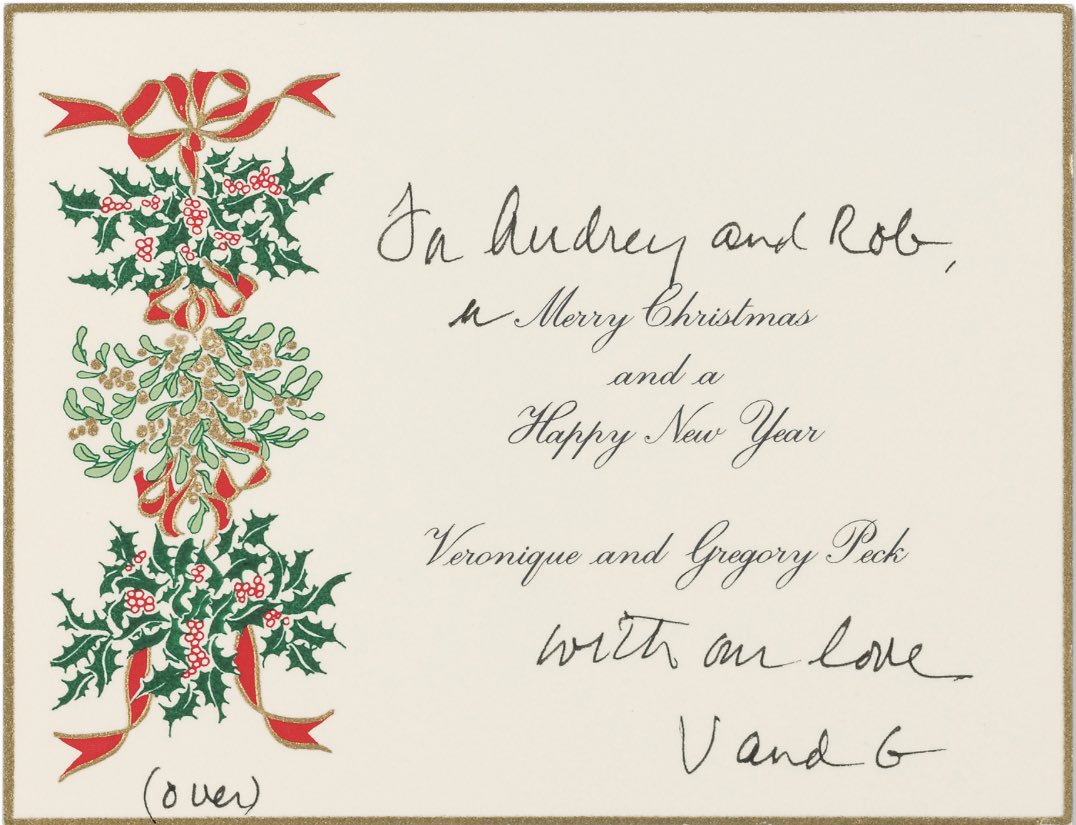 To Audrey and Rob,
a Merry Christmas
and a
Happy New Year
Veronique and Gregory Peck
with our love
V and G
(over)